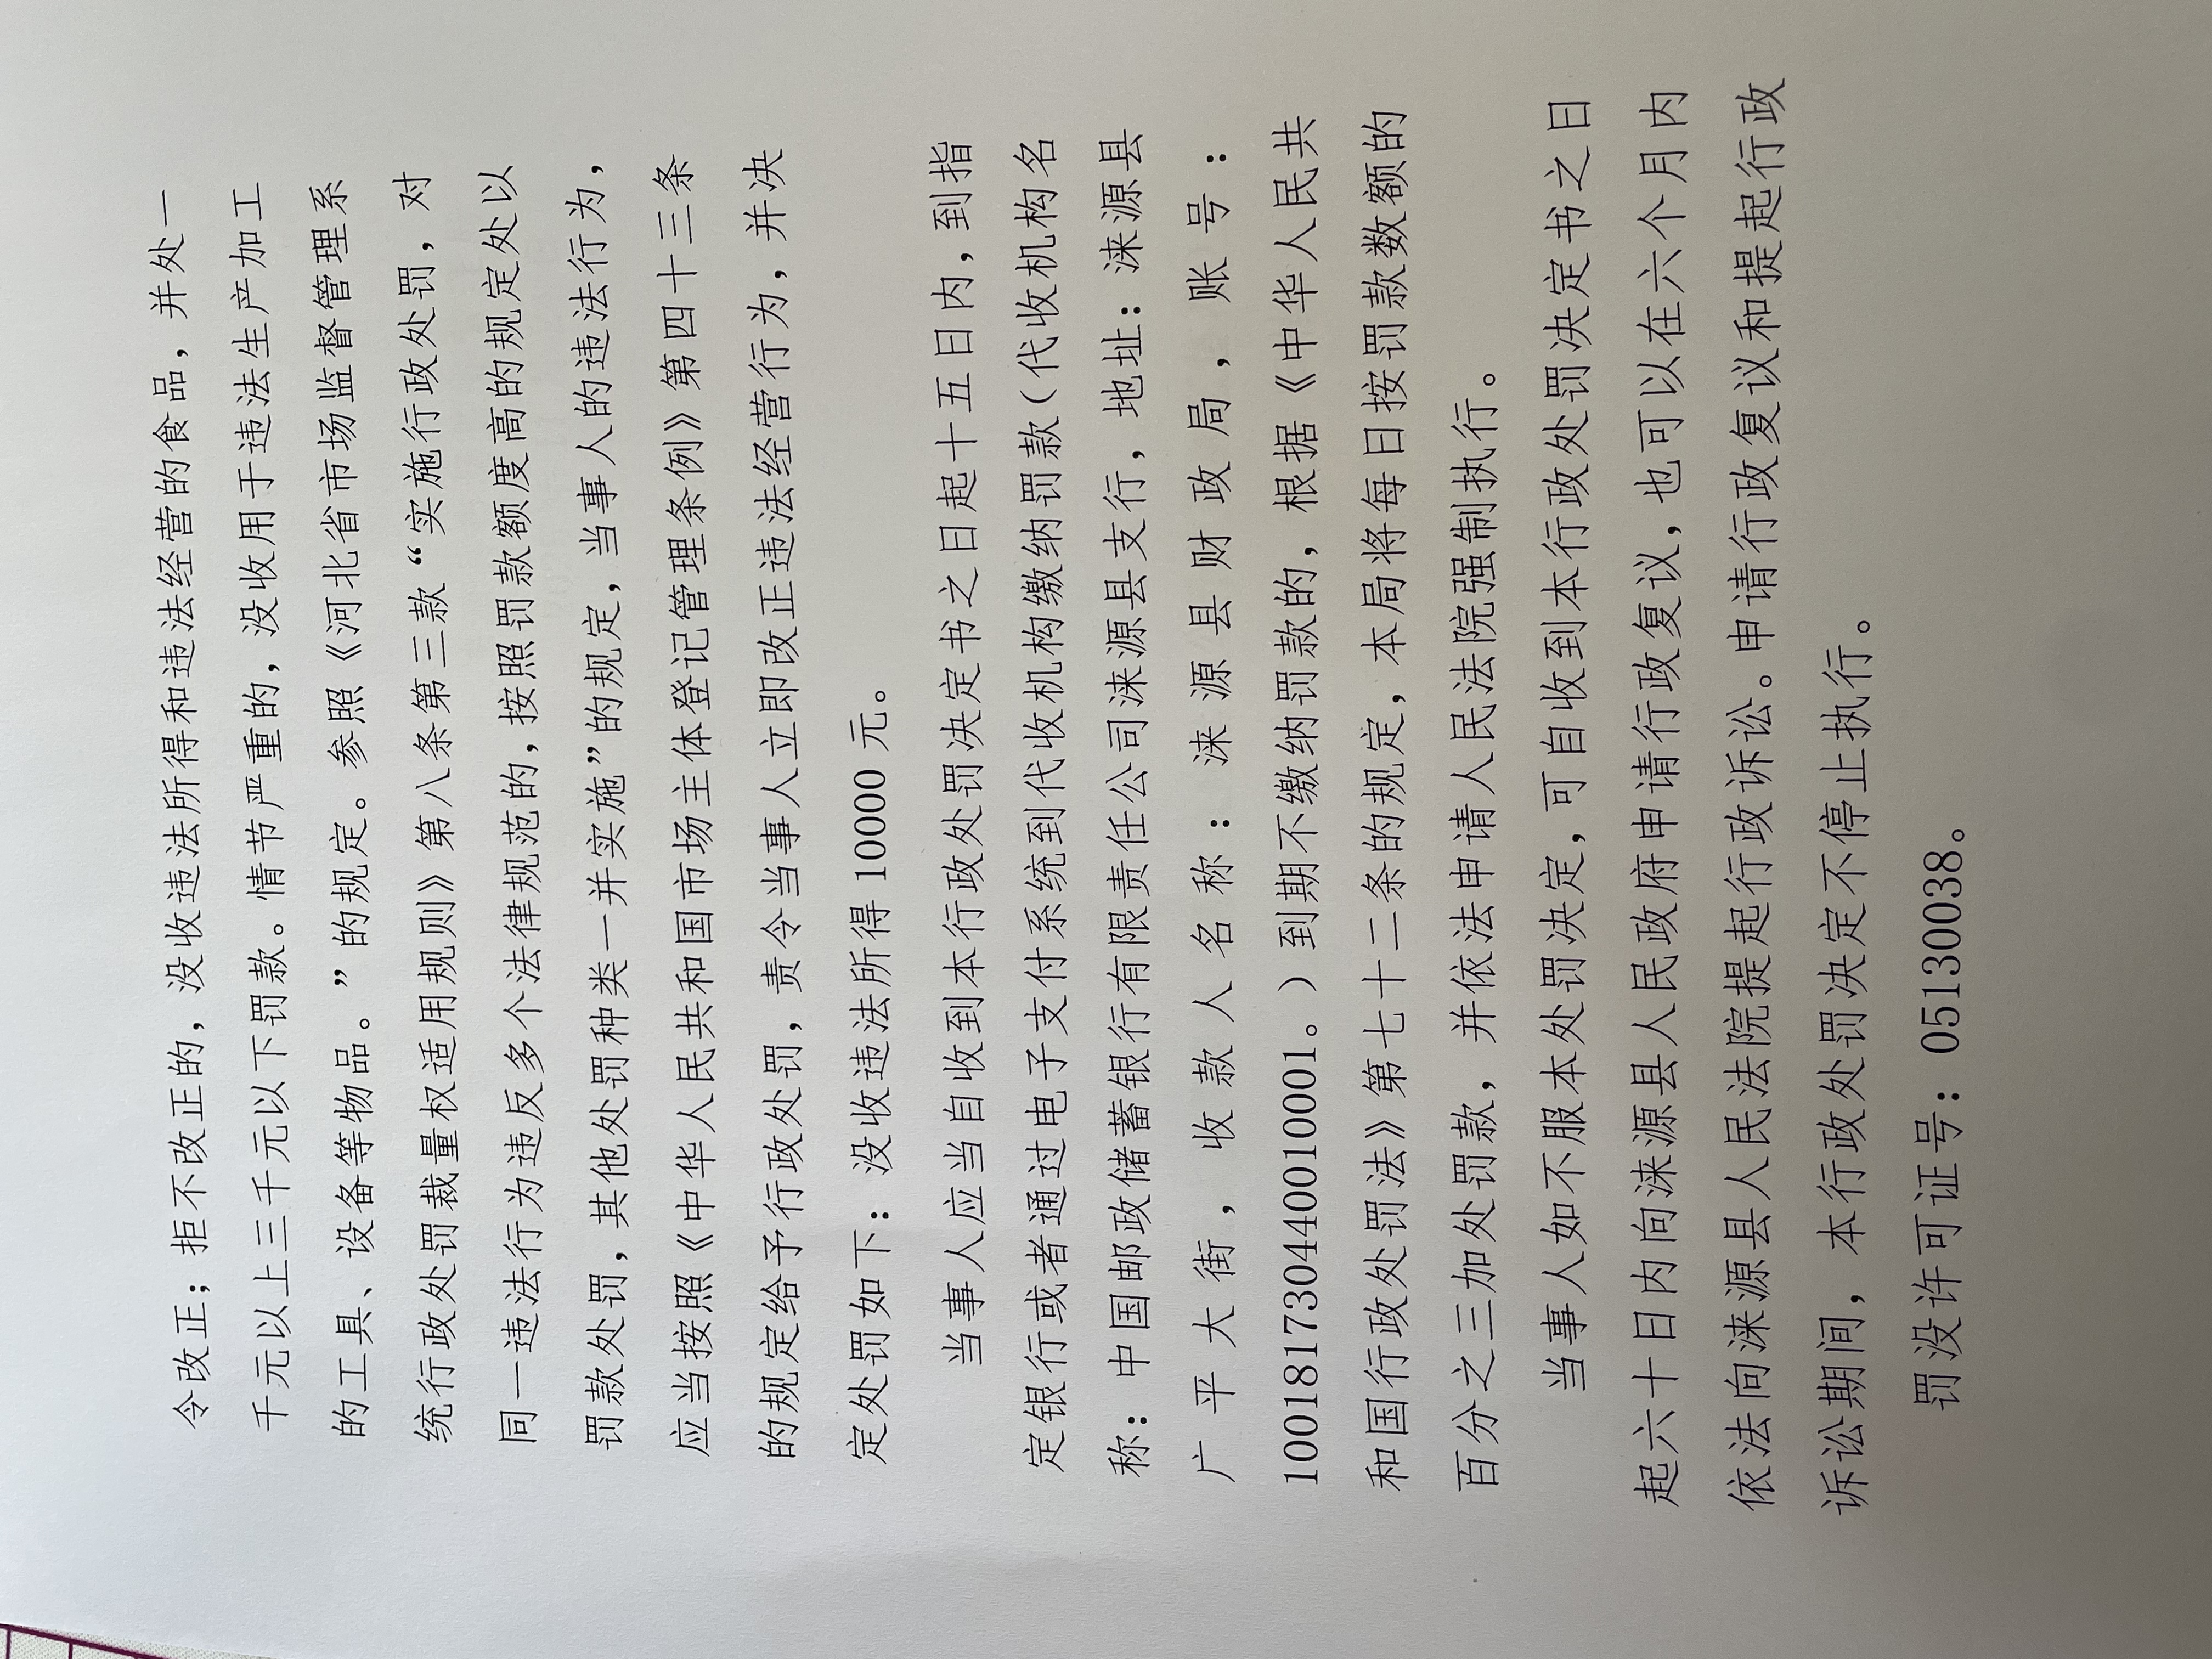 令改正；拒不改正的，没收违法所得和违法经营的食品，并处一
千元以上三千元以下罚款。情节严重的，没收用于违法生产加工
的工具、设备等物品。”的规定。参照《河北省市场监督管理系
统行政处罚裁量权适用规则》第八条第三款“实施行政处罚，对
同一违法行为违反多个法律规范的，按照罚款额度高的规定处以
罚款处罚，其他处罚种类一并实施”的规定，当事人的违法行为，
应当按照《中华人民共和国市场主体登记管理条例》第四十三条
的规定给予行政处罚，责令当事人立即改正违法经营行为，并决
定处罚如下：没收违法所得 10000 元。
当事人应当自收到本行政处罚决定书之日起十五日内，到指
定银行或者通过电子支付系统到代收机构缴纳罚款（代收机构名
称：中国邮政储蓄银行有限责任公司涞源县支行，地址：涞源县
广平大街，收款人名称：涞源县财政局，账号：
100181730440010001。）到期不缴纳罚款的，根据《中华人民共
和国行政处罚法》第七十二条的规定，本局将每日按罚款数额的
百分之三加处罚款，并依法申请人民法院强制执行。
当事人如不服本处罚决定，可自收到本行政处罚决定书之日
起六十日内向涞源县人民政府申请行政复议，也可以在六个月内
依法向涞源县人民法院提起行政诉讼。申请行政复议和提起行政
诉讼期间，本行政处罚决定不停止执行。
罚没许可证号：05130038。